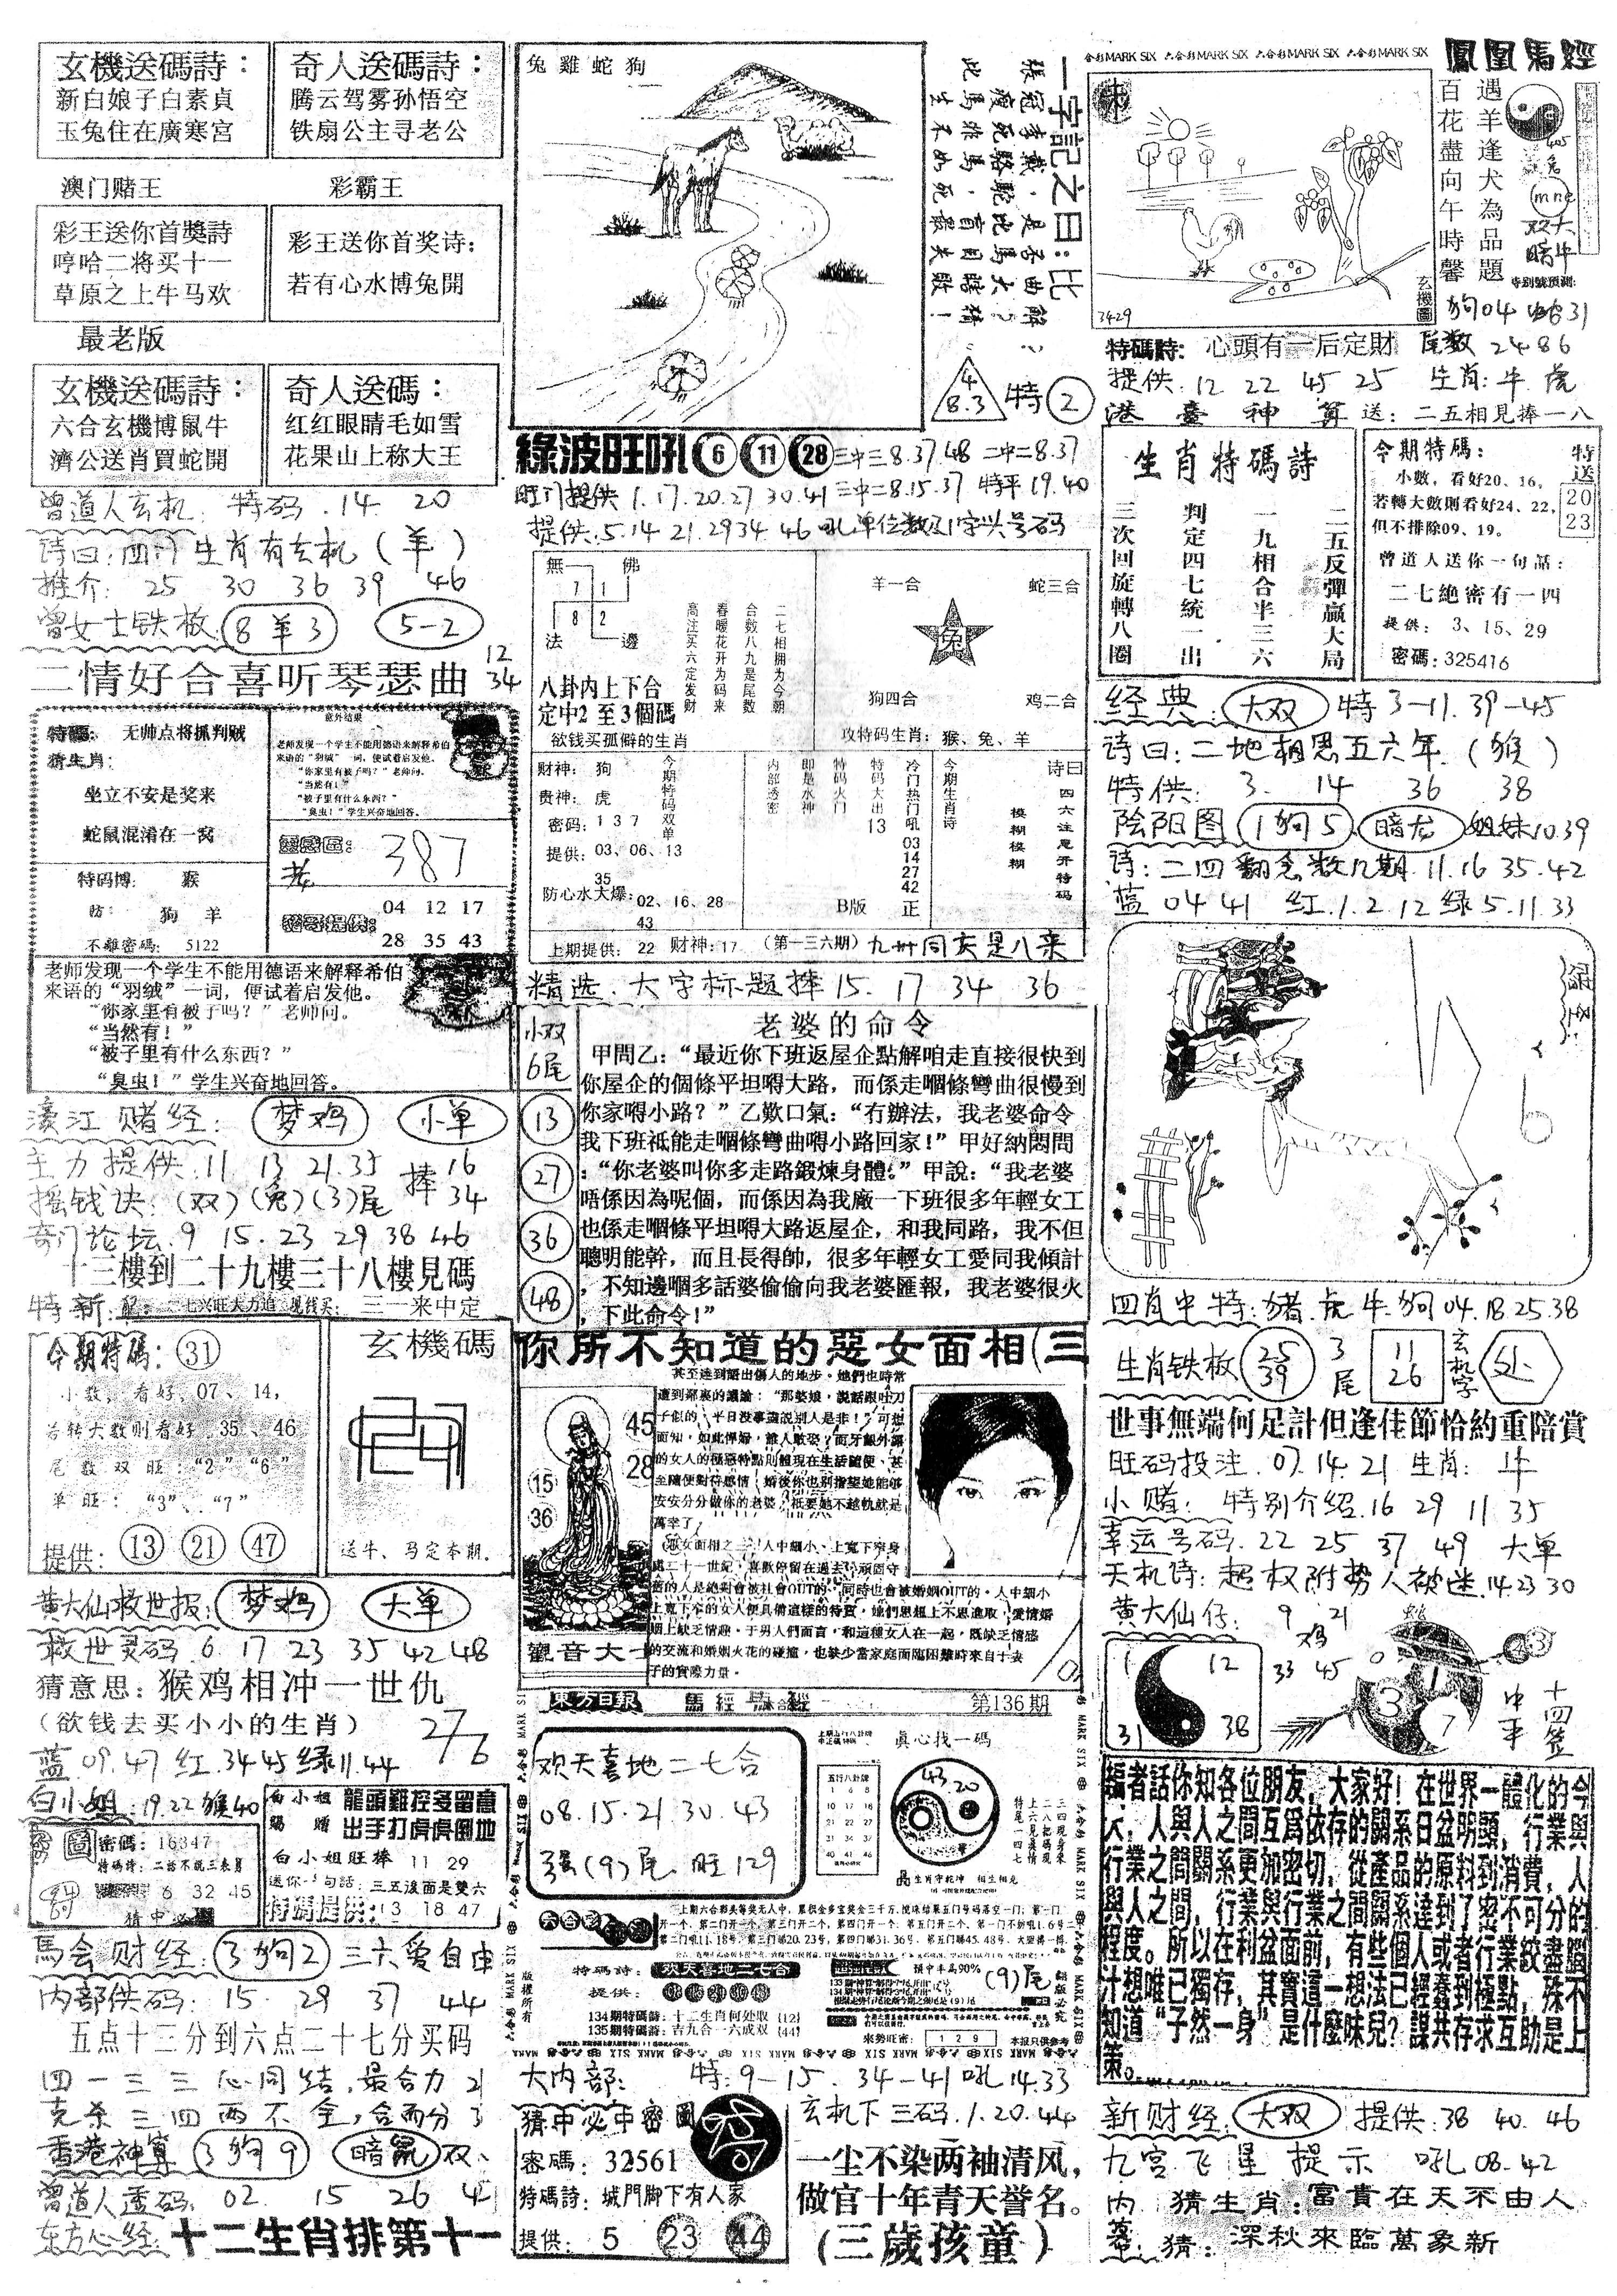 玄機送碼詩：
新白娘子白素貞
玉兔住在廣寒宮
奇人送碼詩：
腾云驾雾孙悟空
铁扇公主寻老公
澳门赌王
彩霸王
彩王送你首獎詩
哼哈二将买十一
草原之上牛马欢
彩王送你首奖诗：
若有心水博兔開
最老版
玄機送碼詩：
六合玄機博鼠牛
濟公送肖買蛇開
奇人送碼：
红红眼睛毛如雪
花果山上称大王
曾道人玄机：特码.14.20
诗曰：四门生肖有玄机（羊）
推介：25 30 36 39 46
曾女士铁板：8羊3 5-2
二情好合喜听琴瑟曲 12 34
无帅点将抓判贼
猜生肖：
坐立不安是奖来
蛇鼠混淆在一窝
特码博：猴
防：狗 羊
不離密碼：5122
意外结果
老师发现一个学生不能用德语来解释希伯
来语的“羽绒”一词，便试着启发他。
“你家里有被子吗？”老师问。
“当然有！”
“被子里有什么东西？”
“臭虫！”学生兴奋地回答。
387
04 12 17
28 35 43
老师发现一个学生不能用德语来解释希伯
来语的“羽绒”一词，便试着启发他。
“你家里有被子吗？”老师问。
“当然有！”
“被子里有什么东西？”
“臭虫！”学生兴奋地回答。
濠江赌经：梦鸡 小单
主力提供.11 13 21.35 捧 16 34
摇钱诀：（双）（兔）（3）尾
奇门论坛.9 15.23 29 38 46
十三樓到二十九樓三十八樓見碼
特新： 三一来中定
今期特碼：31
小数，看好 07、14，
若转大数则看好.35、46
尾数双旺：“2”“6”
单旺：“3”、“7”
提供：13 21 47
玄機碼
送牛、马定本期.
黄大仙救世报：梦鸡 大单
救世灵码.6 17 23 35 42 48
猜意思：猴鸡相冲一世仇
（欲钱去买小小的生肖）
蓝.09.47 红.34 45 绿11.44
白小姐：19.22 猴40
密碼：16347
6 32 45
白小姐
賜贈
龍頭雞控多留意
出手打虎虎倒地
白小姐旺棒 11 29
送你一句話：三五波面是雙六
13 18 47
馬会财经：3狗2 三六爱自由
内部供码：15 29 37 44
五点十二分到六点二十七分买码
四一三三心同结，最合力21
克杀三四两不全，合而分3
香港神算 3狗9 暗鼠 双、
曾道人透码：02 15 26 42
东方心经：十二生肖排第十一
兔雞蛇狗
一字記之曰：比
張冠李戴，是否曲解？
瘦死駱駝比馬大
此馬非馬，盲目瞎猜！
生不如死最失敗！
4
8.3
特 2
綠波旺吼 6 11 28 三中三8.37.48 二中二8.37
旺门提供 1.17.20.27 30.41 三中二8.15.37 特平19.40
提供.5.14 21.29 34 46 吼单位数及1字头号码
無 佛
7 1
8 2
法 邊
八卦内上下合
定中2至3個碼
二七相拥为今朝
合数八九是尾数
春暖花开为码来
高注买六定发财
欲钱买孤僻的生肖
羊一合
蛇三合
兔
狗四合
鸡二合
攻特码生肖：猴、兔、羊
财神：狗
贵神：虎
密码：137
提供：03、06、13
35
防心水大爆：02、16、28
43
今期特码双单
内部透密
即是水神
特码火门
特码大出13
冷门热门吼
03
14
27
42
正
B版
今期生肖诗
诗曰
四六注意开特码
模糊模糊
上期提供：22 财神：17（第一三六期）九州同庆是八来
精选.大字标题捧15.17 34 36
小双
6尾
13
27
36
48
老婆的命令
甲問乙：“最近你下班返屋企點解咱走直接很快到
你屋企的個條平坦嘚大路，而係走嗰條彎曲很慢到
你家嘚小路？”乙歎口氣：“冇辦法，我老婆命令
我下班祇能走嗰條彎曲嘚小路回家！”甲好納悶問
：“你老婆叫你多走路鍛煉身體。”甲說：“我老婆
唔係因為呢個，而係因為我廠一下班很多年輕女工
也係走嗰條平坦嘚大路返屋企，和我同路，我不但
聰明能幹，而且長得帥，很多年輕女工愛同我傾計
，不知邊嗰多話婆偷偷向我老婆匯報，我老婆很火
，下此命令！”
你所不知道的惡女面相（三
甚至達到語出傷人的地步。她們也時常
遭到鄰裏的議論：“那婆娘，說話跟吐刀
子似的，平日没事盡説别人是非！”可想
而知，如此悍婦，誰人敢娶？而牙齦外露
的女人的極惡特點則體現在生活隨便、甚
至隨便對待感情，婚後你也别指望她能够
安安分分做你的老婆，祇要她不越軌就是
萬幸了。
惡女面相之三：人中細小、上寬下窄身
處二十一世紀，喜歡停留在過去、頑固守
舊的人是絶對會被社會OUT的，同時也會被婚姻OUT的。人中細小
上寬下窄的女人便具備這樣的特質，她們思想上不思進取，愛情婚
姻上缺乏情趣。于男人們而言，和這種女人在一起，既缺乏情感
的交流和婚姻火花的碰撞，也缺少當家庭面臨困難時來自于妻
子的實際力量。
45
28
15
36
觀音大士
東方日報 第136期
欢天喜地二七合
08.15.21.30.43
强（9）尾 旺129
真心找一碼
五行八卦牌
1 6 8
10 17 18
21 22 27
31 34 37
40 41 46
43 20
生肖守乾坤 相生相克
特碼詩：欢天喜地二七合
提供：
134期特碼詩：十二生肖何处取{12}
135期特碼詩：吉九合一六成双{44}
預中率高90%
（9）尾
來勢旺密：129 本报只供参考
版權所有
翻版必究
大内部：特：9-15.34-41 吼14.33
猜中必中密圖
密碼：32561
特碼詩：城門脚下有人家
提供：5 23 44
玄机下三码.1.20.44
一尘不染两袖清风，
做官十年青天誉名。
（三歲孩童）
合彩MARK SIX 六合彩MARK SIX 六合彩MARK SIX 六合彩MARK SIX
鳳凰馬經
遇羊逢犬為品題
百花盡向午時馨
405
兔
双大
暗牛
特别號预測：
狗04 蛇31
3429
玄機圖
特碼詩：心頭有一后定財 尾数 2486
提供.12 22 45 25 生肖：牛.虎
港臺神算送：二五相見捧一八
生肖特碼詩
二五反彈贏大局
一九相合半三六
判定四七統一出
三次回旋轉八圈
今期特碼：
小數，看好20、16，
若轉大數則看好24、22，
但不排除09、19。
特送
20
23
曾道人送你一句話：
二七絶密有一四
提供：3、15、29
密碼：325416
经典：大双 特3-11.39-45
诗曰：二地相思五六年（猴）
特供：3. 14 36 38
陰阳图 1狗5 暗龙 姐妹10.39
诗：二四翻念数几期.11.16 35.42
蓝 04 41 红.1.2.12 绿5.11.33
赌圣：
四肖中特：猪.虎 牛.狗04.18.25.38
生肖铁板 25 39 3尾 11 26 玄机字 处
世事無端何足計但逢佳節恰約重陪賞
旺码投注.07.14.21 生肖：牛
小赌：特别介绍.16 29 11 35
幸运号码.22 25 37 49 大单
天机诗：趋权附势人被迷.14 23 30
黄大仙仔：9 21
鸡
33 45
1 12
31 38
十四签
中平
編者話你知各位朋友，大家好！在世界一體化的今
天，人與人之間互爲依存的關系日益明顯，行業與
行業之間關系更加密切，從產品的原料到消費，人
與人之間，行業與行業之間關系達到了密不可分的
程度。所以在利益面前，有些個人或者行業絞盡腦
汁想唯已獨存，其實這一想法已經蠢到極點，殊不
知道“孑然一身”是什麼味兒？謀共存求互助是上
策。
新财经：大双 提供：38 40.46
九宫飞星提示 吼08.42
内 猜生肖：富貴在天不由人
幕：猜：深秋來臨萬象新